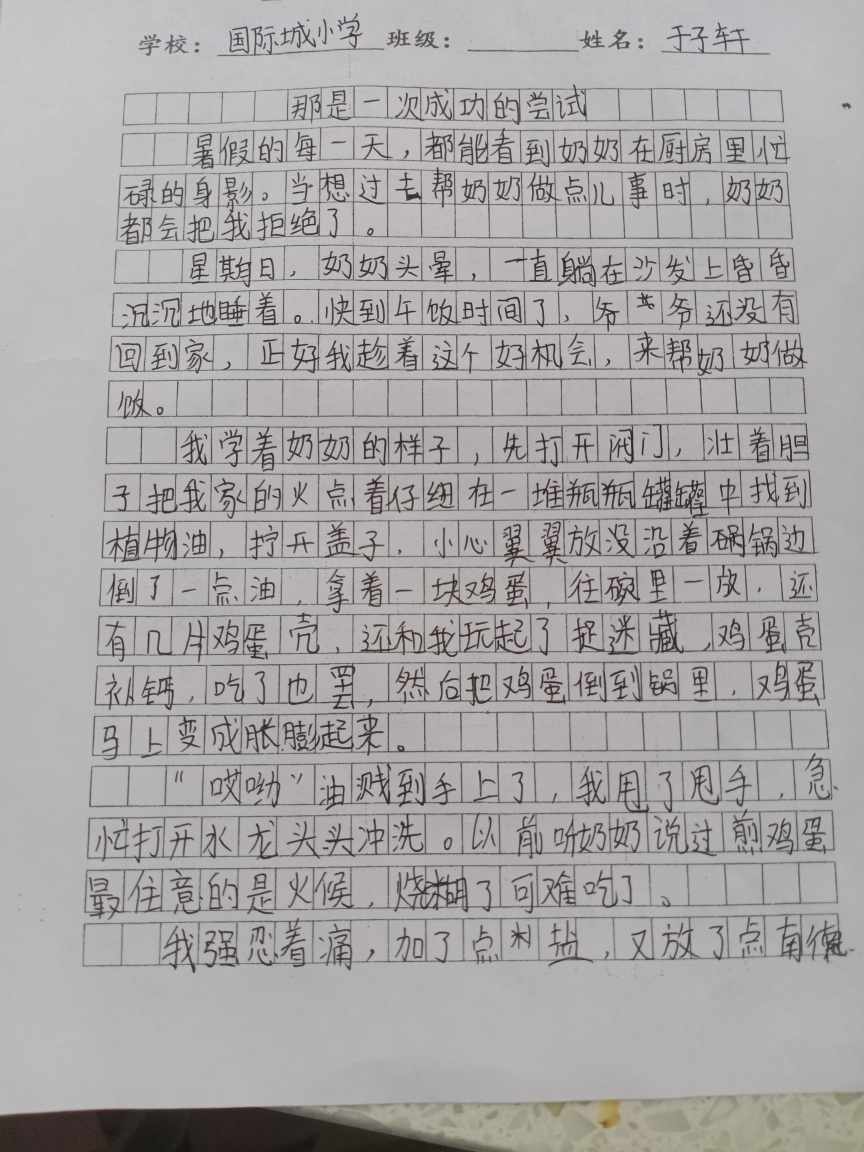 学校：国际城小学 班级： 姓名：于子轩
那是一次成功的尝试
暑假的每一天，都能看到奶奶在厨房里忙
碌的身影。当想过去帮奶奶做点儿事时，奶奶
都会把我拒绝了。
星期日，奶奶头晕，一直躺在沙发上昏昏
沉沉地睡着。快到午饭时间了，爷爷还没有
回到家，正好我趁着这个好机会，来帮奶奶做
饭。
我学着奶奶的样子，先打开闭门，壮着胆
子把我家的火点着仔细在一堆瓶瓶罐罐中找到
植物油，拧开盖子，小心翼翼放没沿着锅边
倒了一点油，拿着一块鸡蛋，往碗里一放，还
有几片鸡蛋壳，还和我玩起了捉迷藏，鸡蛋壳
补钙，吃了也罢，然后把鸡蛋倒到锅里，鸡蛋
马上变成胀膨起来。
“哎呦”油溅到手上了，我甩了甩手，急
忙打开水龙头头冲洗。以前听奶奶说过煎鸡蛋
最住意的是火候，烧糊了可难吃了。
我强忍着痛，加了点盐，又放了点南德